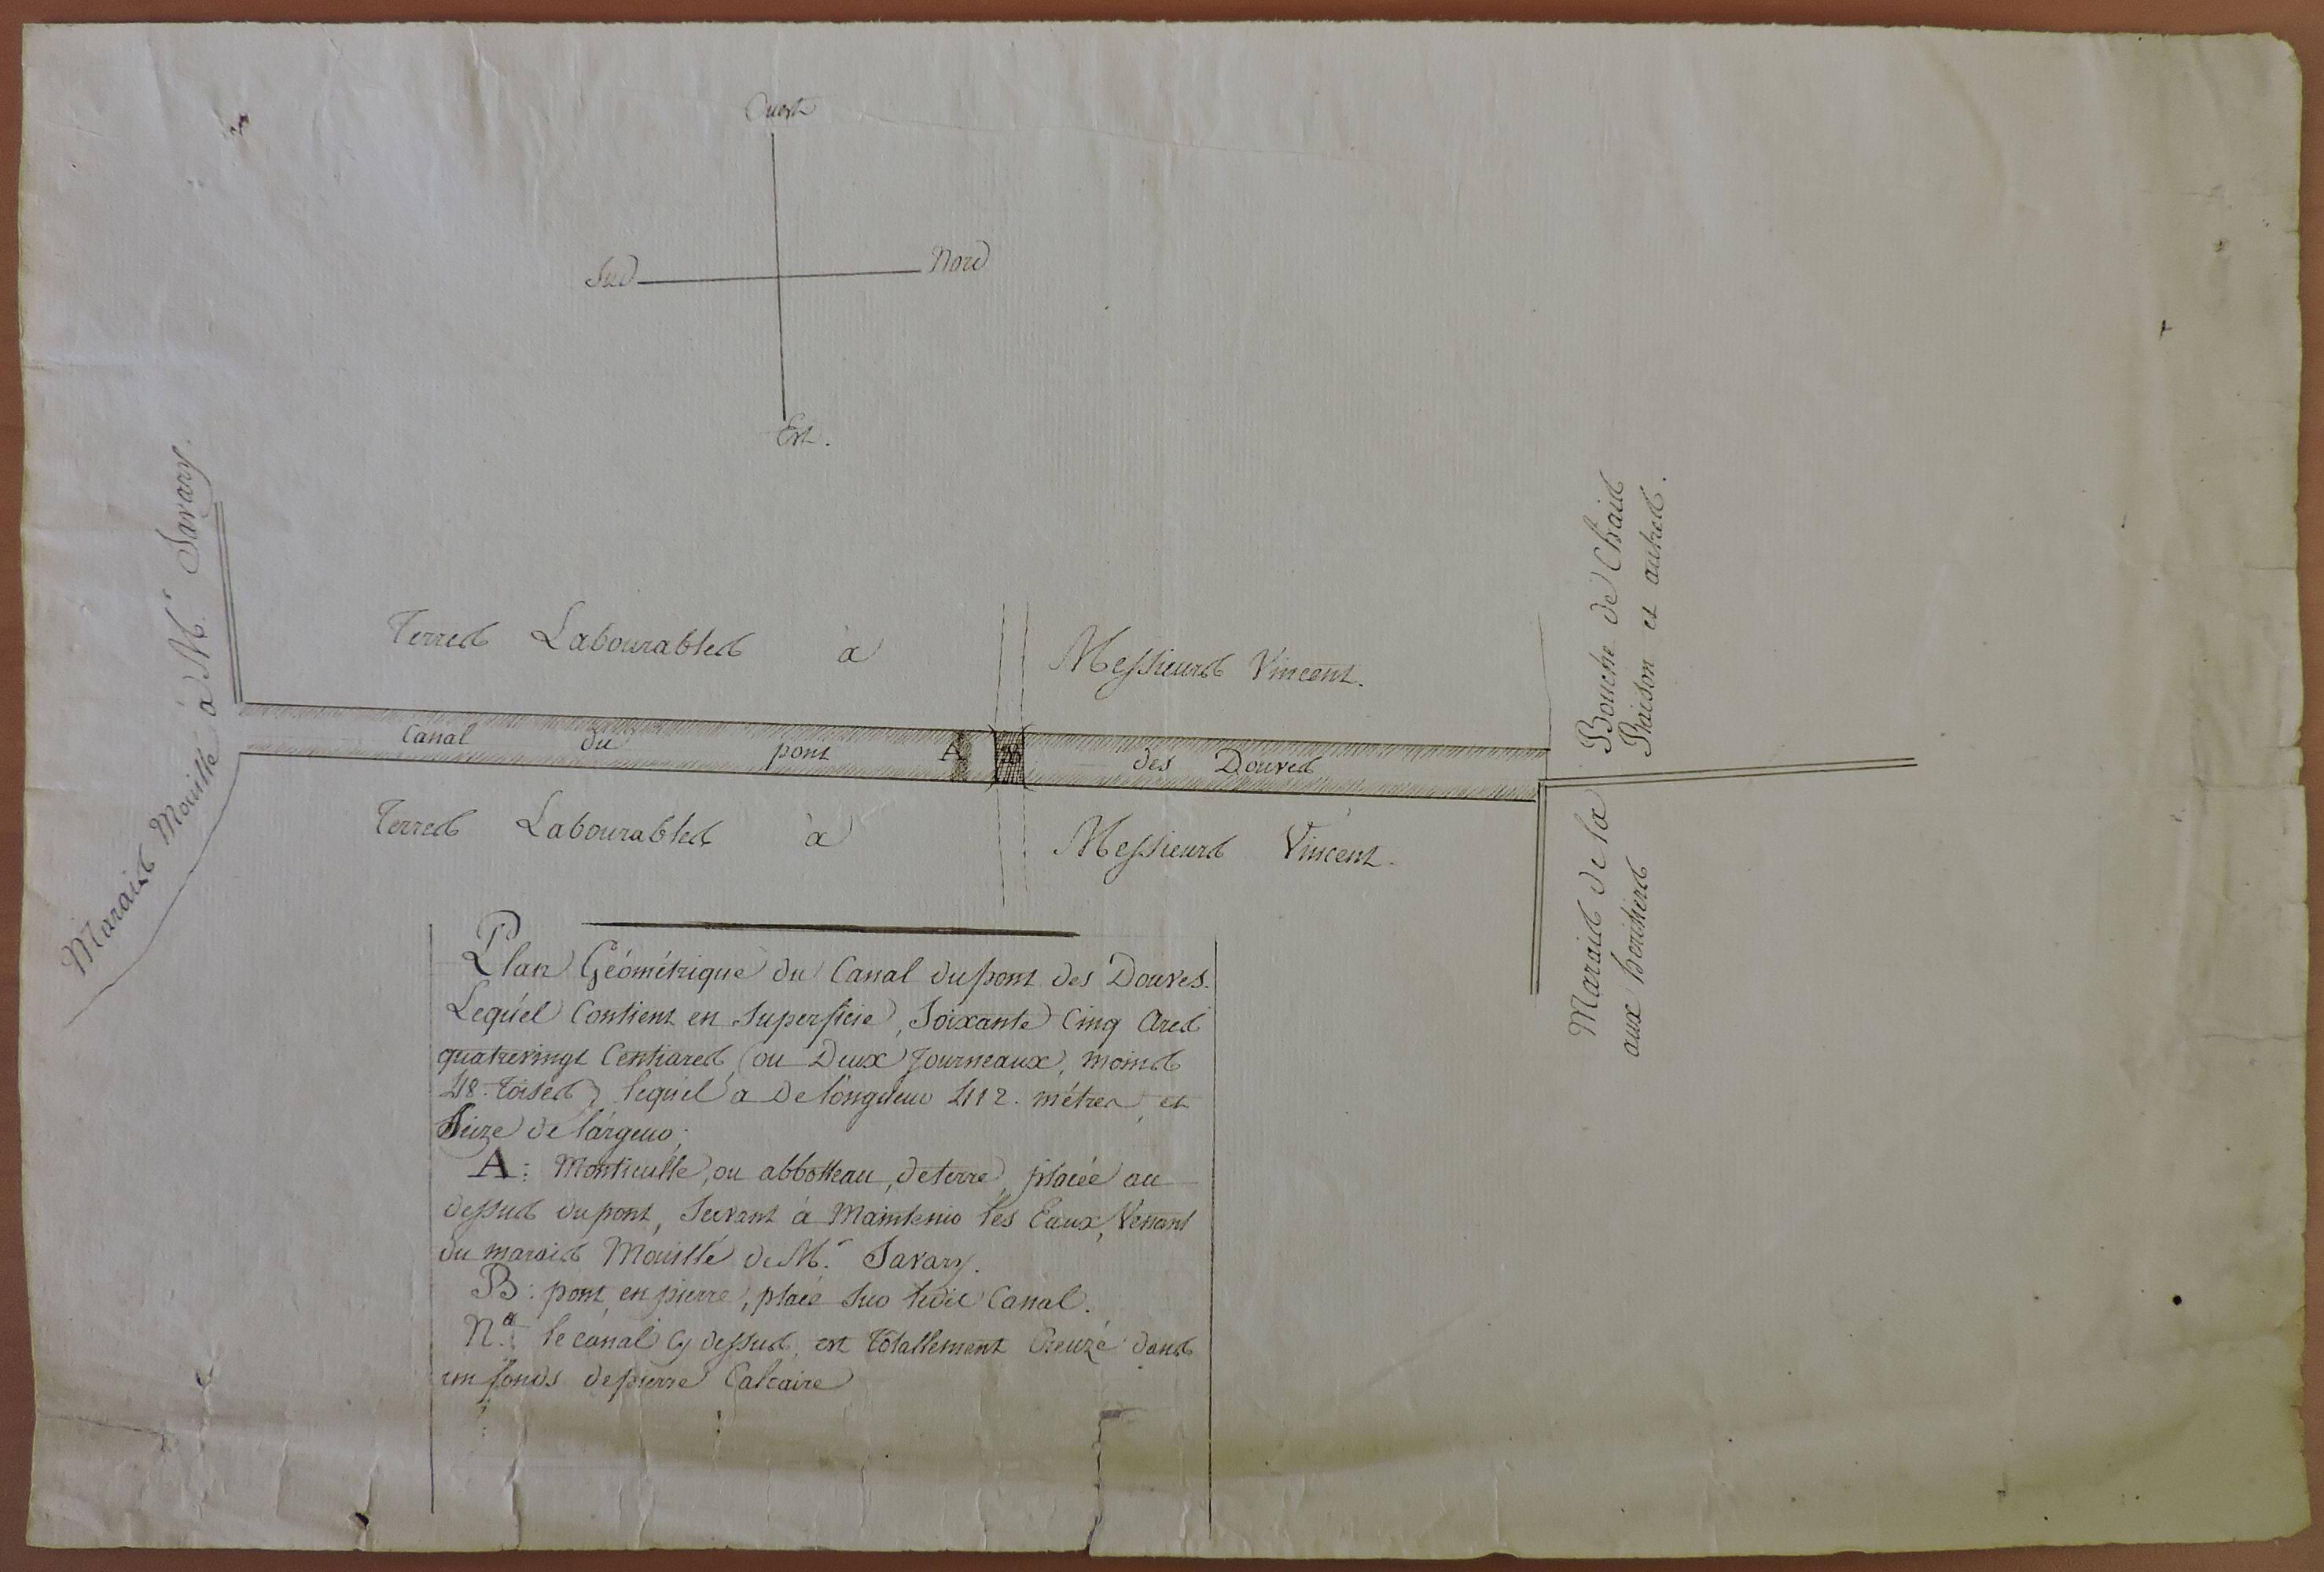 Ouest
Sud
Nord
Est.
Marais Mouillé à Mr. Savary.
Terres Labourables à Messieurs Vincent.
Canal du pont A B des Douves
Terres Labourables à Messieurs Vincent.
Marais de la Bouche de Chais
aux heritiers Raison et autres.
Plan Géométrique du Canal du pont des Douves.
Lequel Contient en Superficie, Soixante Cinq Ares
quatrevingt Centiares (ou Deux Journeaux, moins
48 toises) lequel a De longueur 412. métres, et
Seize de largeur;
A: Monticulle, ou abbotteau, de terre, placée au
dessus du pont, Servant à Maintenir les Eaux, Venant
du marais Mouillé de Mr. Savary.
B: pont en pierre, placé Sur ledit Canal.
Na: le canal Cy dessus, est totallement Creuzé dans
un fonds de pierre Calcaire